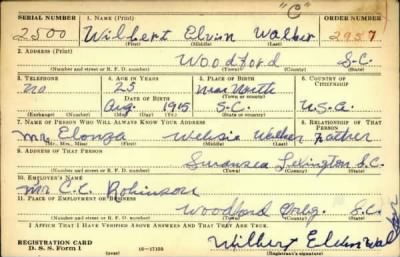 "C"
SERIAL NUMBER 1. NAME (Print) ORDER NUMBER
2500 Wilbert Elvin Walker 2957
(First) (Middle) (Last)
2. ADDRESS (Print)
Woodford S.C.
(Number and street or R. F. D. number) (Town) (County) (State)
3. TELEPHONE 4. AGE IN YEARS 5. PLACE OF BIRTH 6. COUNTRY OF CITIZENSHIP
no 25 Near North
DATE OF BIRTH (Town or county)
Aug. 1915 S.C. U.S.A.
(Exchange) (Number) (Mo.) (Day) (Yr.) (State or country)
7. NAME OF PERSON WHO WILL ALWAYS KNOW YOUR ADDRESS 8. RELATIONSHIP OF THAT PERSON
Mr. Elonza Walker Father
(Mr., Mrs., Miss) (First) (Middle) (Last)
9. ADDRESS OF THAT PERSON
Swansea Lexington S.C.
(Number and street or R. F. D. number) (Town) (County) (State)
10. EMPLOYER'S NAME
Mr C.C. Robinson
11. PLACE OF EMPLOYMENT OR BUSINESS
Woodford Orbg. S.C.
(Number and street or R. F. D. number) (Town) (County) (State)
I AFFIRM THAT I HAVE VERIFIED ABOVE ANSWERS AND THAT THEY ARE TRUE.
REGISTRATION CARD
D. S. S. Form 1 (over) Wilbert Elvin Walker
(Registrant's signature)